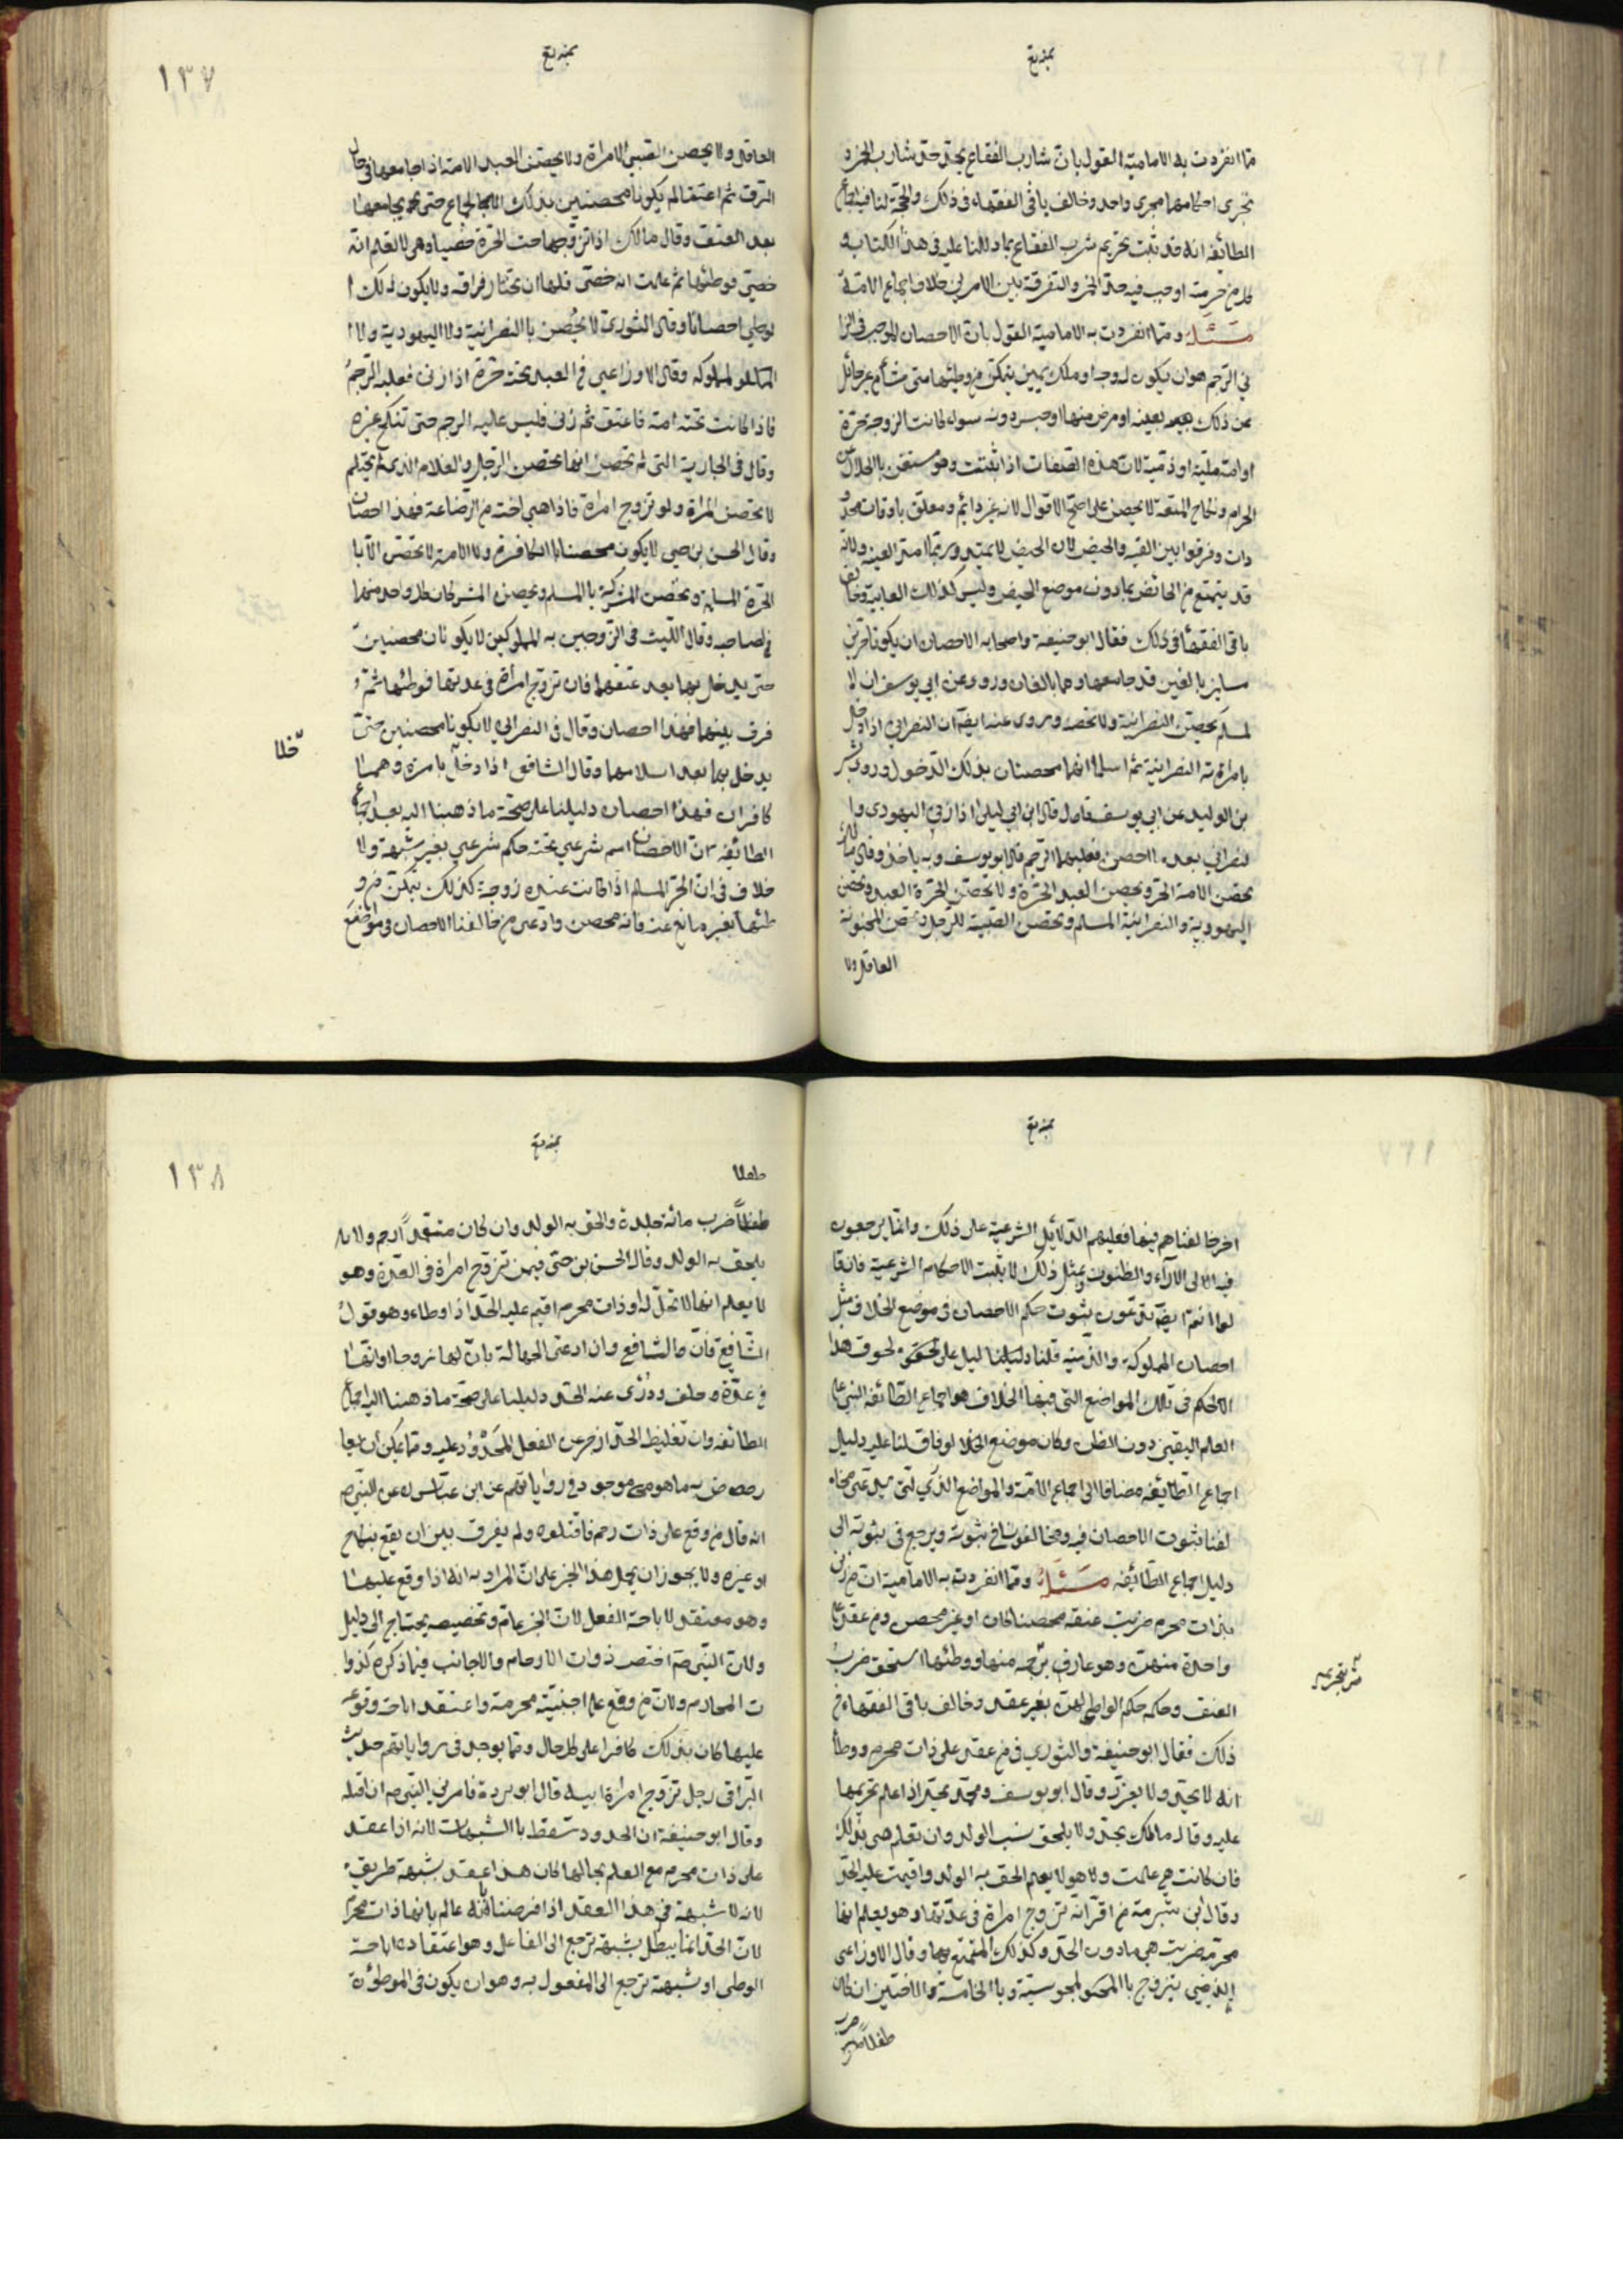 مما انفردت به الامامية القول بان شارب الفقاع يحد حد شارب الخمر و
تجرى احكامهما مجرى واحد وخالف باقى الفقهاء فى ذلك والحجة لنا فيه اجماع
الطائفة انه قد ثبت تحريم شرب الفقاع بما دللنا عليه فى هذا الكتاب و
كل من حرمه اوجب فيه حد الخمر والتفرقة بين الامرين خلاف اجماع الامة
مسئلة ومما انفردت به الامامية القول بان الاحصان الموجب فى الزنا
فى الرجم هو ان يكون له زوجة او ملك يمين يتمكن من وطئها متى شاء من غير حائل
عن ذلك بغيبه او مرض منها او حبس دونه سواء كانت الزوجة حرة
او امة ملية او ذمية لان هذه الصفات اذا ثبتت وهو مستغن بالحلال عن
الحرام ونكاح المتعة لا يحصن على اصح الاقوال لانه غير دائم ومعلق باوقات محدو
دات وفرقوا بين الغيبة والحيض لان الحيض لا يمتد وربما امتد الغيبة ولانه
قد يتمتع من الحائض بما دون موضع الحيض وليس كذلك الغايبة وخالف
باقى الفقهاء فى ذلك فقال ابو حنيفة واصحابه الاحصان ان يكونا حرين
مسلمين بالغين قد جامعها وهما بالغان وروو عن ابى يوسف ان ا
لمسلم يحصن النصرانية ولا تحصنه وروى عنه ايضا ان النصرانى اذا دخل
بامراته النصرانية ثم اسلما انهما محصنان بذلك الدخول وروى بشر
بن الوليد عن ابى يوسف قال قال ابن ابى ليلى اذا زنى اليهودى وا
لنصرانى بعد ما احصن فعليهما الرجم قال ابو يوسف وبه ياخذ وقال مالك
تحصن الامة الحر ويحصن العبد الحرة ولا تحصن الحرة العبد وتحصن
اليهودية والنصرانية المسلم وتحصن الصبية الرجل وتحصن المجنونة
العاقل ولا
١٣٧
العاقل ولا يحصن الصبى الامراة ولا يحصن العبد الامة اذا جامعها فى حال
الرق ثم اعتقا لم يكونا محصنين بذلك الجماع حتى يجامعها
بعد العتق وقال مالك اذا تزوجها تحت الحرة خصيا وهى لا تعلم انه
خصى فوطئها ثم علمت انه خصى فلها ان تختار فراقه ولا يكون ذلك ا
لوطى احصانا وقال الثورى لا يحصن بالنصرانية ولا اليهودية ولا
المملوكه وقال الاوزاعى فى العبد تحته حرة اذا زنى فعليه الرجم
فاذا كانت تحته امة فاعتق ثم زنى فليس عليه الرجم حتى تنكح غيره
وقال فى الجارية التى لم تحصن انها تحصن الرجل والغلام الذى لم يحتلم
لا تحصن المراة ولو تزوج امراة فاذا هى اخته من الرضاعة فهذا احصان
وقال الحسن بن حى لا يكون محصنا بالكافرة ولا الامة لا تحصن الا با
الحرة المسلمة وتحصن المشركة بالمسلم ويحصن المشركان كل واحد منهما
صاحبه وقال الليث فى الزوجين المملوكين لا يكونان محصنين
حتى يدخل بها بعد عتقهما فان تزوج امراة فى عدتها فوطئها ثم
فرق بينهما فهذا احصان وقال فى النصرانى لا يكونا محصنين حتى
يدخل بها بعد اسلامهما وقال الشافعى اذا دخل بامرة وهما
كافران فهذا احصان دليلنا على صحة ما ذهبنا اليه بعد اجماع
الطائفة ان الاحصان اسم شرعى تحته حكم شرعى بغير شبهة ولا
خلاف فى ان الحر المسلم اذا كانت عنده زوجة كذلك يتمكن من و
طئها بغير مانع عنه فانه محصن وادعى من خالفنا الاحصان فى مواضع
اخر خالفناهم فيها فعليهم الدلائل الشرعية على ذلك وانما يرجعون
فيه الى الآراء والظنون وبمثل ذلك لا يثبت الاحكام الشرعية فان قا
لوا انتم ايضا تدعون ثبوت حكم الاحصان فى موضع الخلاف مثل
احصان المملوكة والذمية قلنا دليلنا على لحوق هذا
الحكم فى تلك المواضع التى فيها الخلاف هو اجماع الطائفة المبنى على
العلم اليقين دون الظن وكان موضع الخلا لو فاق لنا عليه دليل
اجماع الطائفة مضافا الى اجماع الامة والمواضع الذى يدعى مخا
لفنا ثبوت الاحصان فيه ومخالفون فى ثبوته ويرجع فى ثبوته الى
دليل اجماع الطائفة مسئلة ومما انفردت به الامامية ان من زنى
بذات محرم ضربت عنقه محصنا كان او غير محصن ومن عقد على
واحدة منهن وهو عارف برحمه منها ووطئها استحق ضرب
العنق وحكمه حكم الواطى لهن بغير عقد وخالف باقى الفقهاء فى
ذلك فقال ابو حنيفة والثورى فى من عقد على ذات محرم ووطأ
انه لا يحد ولا يعزر وقال ابو يوسف ومحمد يحد اذا علم تحريمها
عليه وقال مالك يحد ولا يلحق نسب الولد وان تعلم هى بذلك
فان كانت هى علمت ولا هو لا يعلم الحق به الولد واقيمت عليه الحد
وقال ابن شبرمة من اقر انه تزوج امراة فى عدتها وهو يعلم انها
محرمة ضربت هى ما دون الحد وكذلك المتمتع بها وقال الاوزاعى
الذى يتزوج بالمجوسية وبالخامسة والاختين ان كان
١٣٨
طفلا
ضرب مائة جلدة والحق به الولد وان كان متعمدا رجم ولا
يلحق به الولد وقال الحسن بن حى فيمن تزوج امراة فى العدة وهو
لا يعلم انها لا تحل له او ذات محرم اقيم عليه الحد اذا وطاء وهو قول
الشافعى قال الشافعى وان ادعى الجهالة بان لها زوجا او انها
فى عدة وحلف ودرئ عنه الحد دليلنا على صحة ما ذهبنا اليه اجماع
الطائفة وان تغليظ الحد ازجر عن الفعل المحدود عليه ومما يمكن ان يعا
رضون به ما هو موجود فى رواياتهم عن ابن عباس عن النبى ص
انه قال من وقع على ذات رحم فاقتلوه ولم يفرق بين ان يقع بنكاح
او غيره ولا يجوز ان يحمل هذا الخبر على ان المراد به انه اذا وقع عليها
وهو معتقد لاباحة الفعل لان الخبر عام وتخصيصه يحتاج الى دليل
ولان النبى ص اختص ذوات الارحام والاجانب فيما ذكره كذوا
ت المحارم ولان من وقع على اجنبية محرمة واعتقد اباحة وقوعه
عليها كان بذلك كافرا على كل حال ومما يوجد فى رواياتهم حديث
البرا فى رجل تزوج امراة ابيه قال ابو بردة فامرنى النبى ص ان اقتله
وقال ابو حنيفة ان الحدود تسقط بالشبهات لانه اذا عقد
على ذات محرم مع العلم بحالها كان هذا عقد بشبهة طريق
لانه لا شبهة فى هذا العقد اذا فرضنا انه عالم بانها ذات محرم
لان الحد انما يبطل بشبهة ترجع الى الفاعل وهو اعتقاده اباحة
الوطى او شبهة ترجع الى المفعول به وهو ان يكون فى الموطؤة